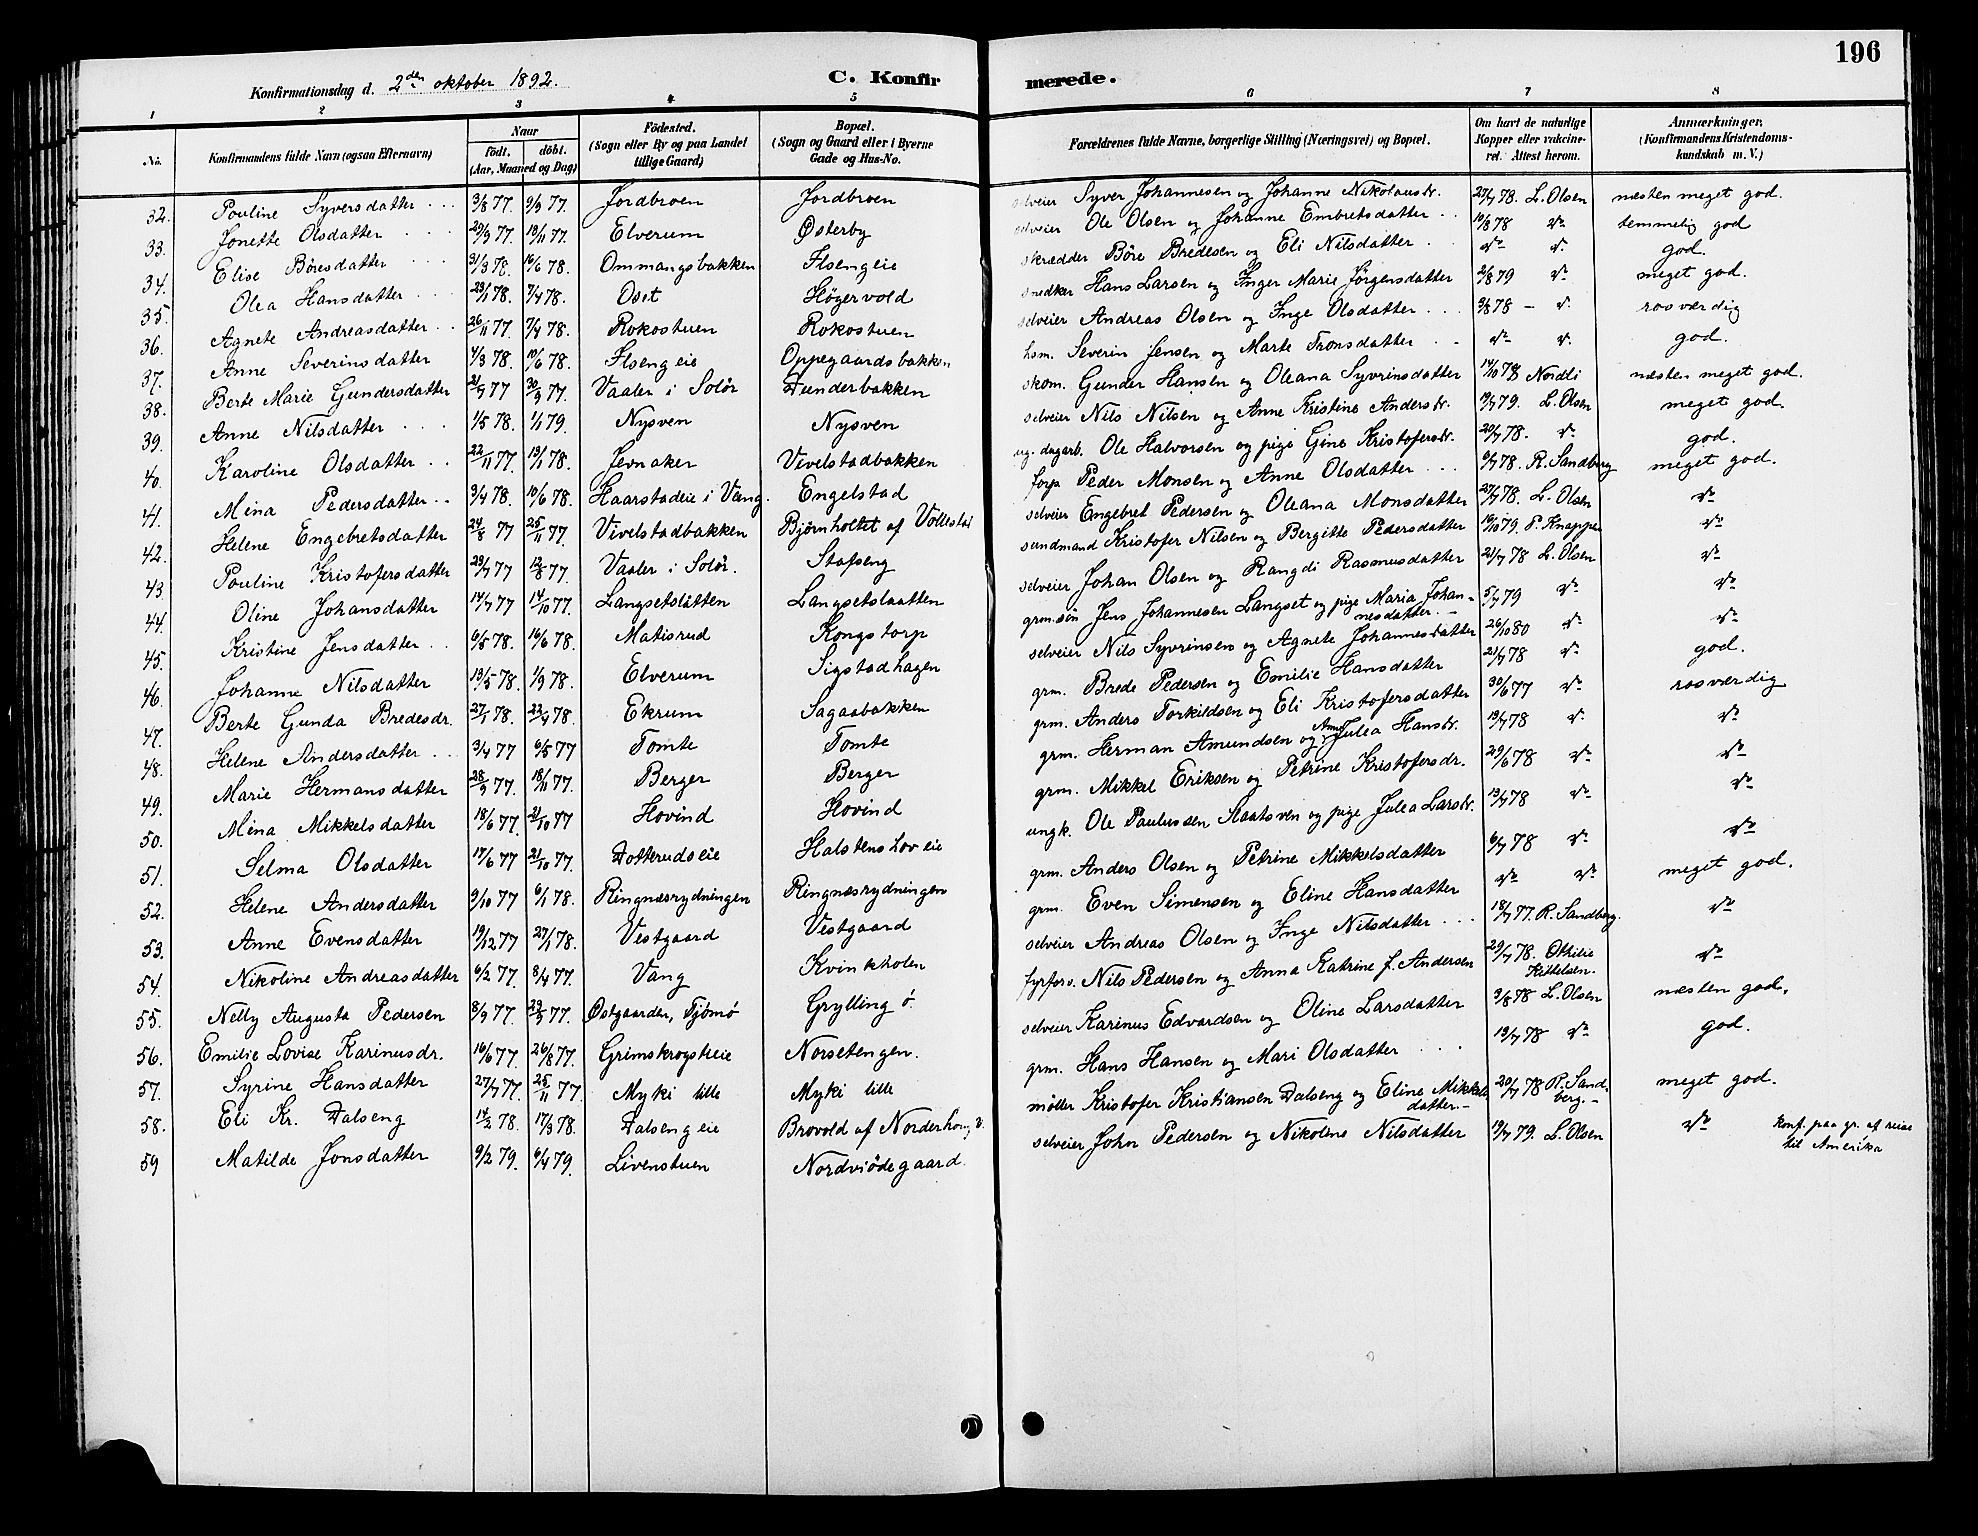 196
Konfirmationsdag d. 2den oktober 1892. C. Konfirmerede.
1 2 3 4 5 6 7 8
No. Konfirmandens fulde Navn (ogsaa Efternavn) Naar födt. döbt. (Aar, Maaned og Dag) Födested. (Sogn eller By og paa Landet tillige Gaard) Bopæl. (Sogn og Gaard eller i Byerne Gade og Hus-No. Forældrenes fulde Navne, borgerlige Stilling (Næringsvei) og Bopæl. Om havt de naturlige Kopper eller vakcineret. Attest herom. Anmærkninger, (Konfirmandens Kristendomskundskab m. V.)
32. Pouline Syversdatter 3/8 77. 9/9 77. Jordbroen Jordbroen selveier Syver Johannesen og Johanne Nikolausdr. 27/7 78. L. Olsen næsten meget god.
33. Jonette Olsdatter 29/9 77. 18/11 77. Elverum Østerby selveier Ole Olsen og Johanne Embretsdatter 10/8 78 do temmelig god
34. Elise Böresdatter 31/3 78. 16/6 78. Ommangsbakken Ilsengeie skrædder Böre Bredesen og Eli Nilsdatter do do god.
35. Olea Hansdatter 29/1 78. 7/4 78. Oset Högervold snedker Hans Larsen og Inger Marie Jörgensdatter 2/8 79 do meget god.
36. Agnete Andreasdatter 26/11 77. 7/4 78. Rokostuen Rokostuen selveier Andreas Olsen og Inge Olsdatter 9/8 78 - do rosværdig
37. Anne Severinsdatter 4/3 78. 10/6 78. Ilsengeie Oppegaardsbakken hsm. Severin Jensen og Marte Tronsdatter do do god.
38. Berte Marie Gundersdatter 21/7 77 30/9 77. Vaaler i Solör Dunderbakken skom. Gunder Hansen og Oleana Syvrinsdatter 14/10 78 Nordli næsten meget god.
39. Anne Nilsdatter 1/5 78. 1/1 79. Nysven Nysven selveier Nils Nilsen og Anne Kristine Andersdr. 19/7 79. L. Olsen meget god.
40. Karoline Olsdatter 22/11 77. 13/1 78. Jevnaker Vivelstadbakken ug. dagarb. Ole Halvorsen og pige Gine Kristofersdr. 20/7 78. do god.
41. Mina Pedersdatter 3/4 78. 10/6 78. Haarstadeie i Vang. Engelstad forp Peder Monsen og Anne Olsdatter 6/7 78. R. Sandberg meget god.
42. Helene Engebretsdatter 24/8 77 25/11 77. Vivelstadbakken Bjørnholtet af selveier Engebret Pedersen og Oleana Monsdatter 27/7 78. L. Olsen do
43. Pouline Kristofersdatter 29/7 77 12/8 77. Vaaler i Solör. Stafseng sundmand Kristofer Nilsen og Bergitte Pedersdatter 19/10 79. P. Knapper do
44. Oline Johansdatter 14/7 77 14/10 77. Langsetslåtten Langsetslaatten selveier Johan Olsen og Rangdi Rasmusdatter 21/7 78 L. Olsen do
45. Kristine Jensdatter 6/5 78. 16/6 78. Matisrud Kongstorp grm.sön Jens Johannesen Langset og pige Maria Johannesdatter. 5/7 79 do do
46. Johanne Nilsdatter 19/5 78. 1/9 78. Elverum Sigstadhagen selveier Nils Syvrinsen og Agnete Johannesdatter 26/10 80 do do
47. Berte Gunda Bredesdr. 27/1 78. 22/4 78. Ekrum Sagaabakken grm. Brede Pedersen og Emilie Hansdatter 21/7 78 do god.
48. Helene Andersdatter 3/4 77 6/5 77 Tomte Tomte grm. Anders Torkildsen og Eli Kristofersdatter 30/6 77 do rosværdig
49. Marie Hermansdatter 28/9 77. 18/11 77. Berger Berger grm. Herman Amundsen og Anne Julea Hansdr. 13/7 78 do do
50. Mina Mikkelsdatter 18/6 77. 21/10 77 Hovind Hovind grm. Mikkel Eriksen og Petrine Kristofersdr. 29/6 78 do do
51. Selma Olsdatter 17/6 77 21/10 77. Dotterudseie Halstenshoveie ungk. Ole Paulussen Slaatsven og pige Julea Larsdr. 13/7 78 do do
52. Helene Andersdatter 9/10 77 6/1 78. Ringnæsrydningen Ringnæsrydningen grm. Anders Olsen og Petrine Mikkelsdatter 6/7 78 do do
53. Anne Evensdatter 19/12 77 27/1 78. Vestgaard Vestgaard grm. Even Simensen og Eline Hansdatter do do meget god.
54. Nikoline Andreasdatter 6/2 77. 8/4 77. Vang Kvinkholen selveier Andreas Olsen og Inge Nilsdatter 18/7 77. R. Sandberg. do
55. Nelly Augusta Pedersen 8/9 77. 23/9 77. Østgaarder, Tjömö Grylling ö fyrforv. Nils Pedersen og Anna Katrine f. Andersen 29/7 78. Othilie Kittelsen. do
56. Emilie Lovise Karinusdr. 16/6 77. 26/8 77. Grimskrogstieie Norsetengen. selveier Karinus Edvardsen og Oline Larsdatter 3/8 78 L. Olsen næsten god.
57. Syrine Hansdatter 27/7 77. 25/11 77. Myki lille Myki lille grm. Hans Hansen og Mari Olsdatter 13/7 78 do god.
58. Eli Kr. Dalseng 14/2 78. 17/3 78. Dalsengeie Brovold af Norderhoug v. möller Kristofer Kristiansen Dalseng og Eline Mikkelsdatter.- 20/7 78 R. Sandberg.- meget god.
59 Matilde Jonsdatter 9/2 79. 6/4 79. Livenstuen Nordviödegaard. selveier John Pedersen og Nikoline Nilsdatter 19/7 79. L. Olsen do Konf. paa gr. af reise til Amerika